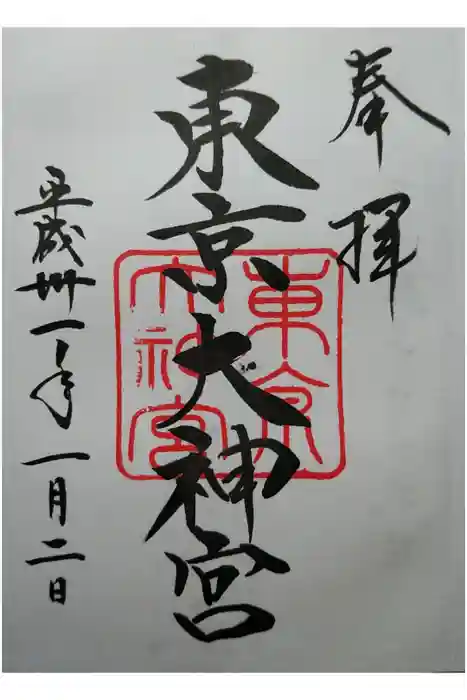 奉拝
東京大神宮
東京大神宮
平成卅一年一月二日